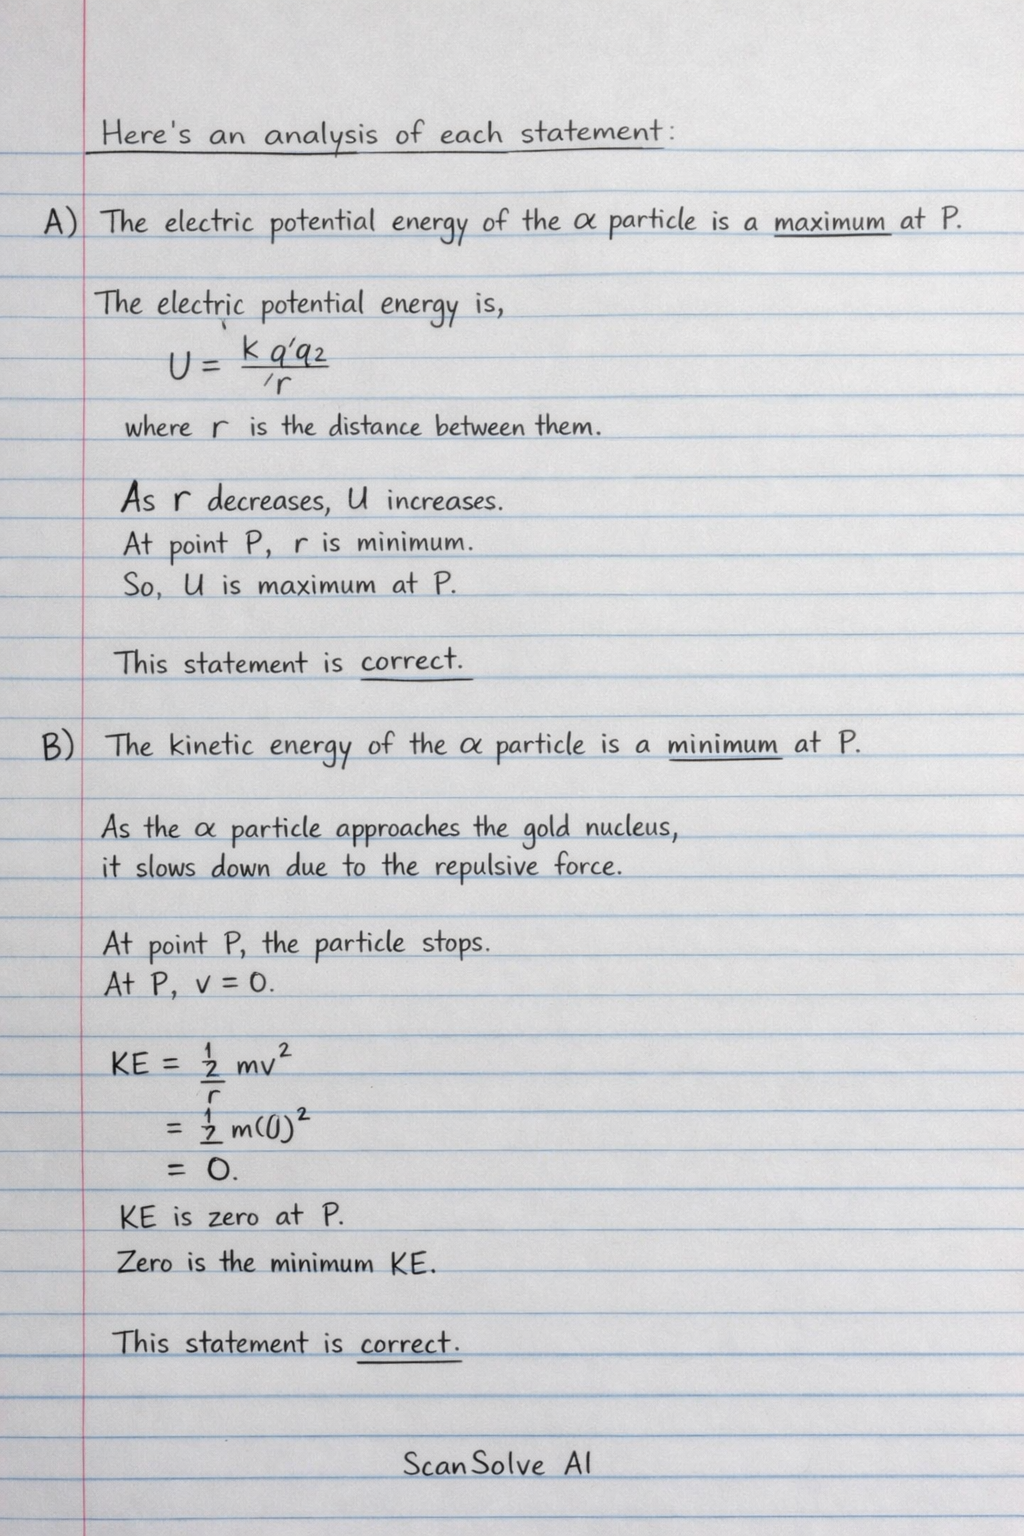 Here's an analysis of each statement:
A) The electric potential energy of the α particle is a maximum at P.
The electric potential energy is,
U = k q'q2 / 'r
where r is the distance between them.
As r decreases, U increases.
At point P, r is minimum.
So, U is maximum at P.
This statement is correct.
B) The kinetic energy of the α particle is a minimum at P.
As the α particle approaches the gold nucleus,
it slows down due to the repulsive force.
At point P, the particle stops.
At P, v = 0.
KE = 1/2 mv²
r
= 1/2 m(0)²
= 0.
KE is zero at P.
Zero is the minimum KE.
This statement is correct.
ScanSolve AI